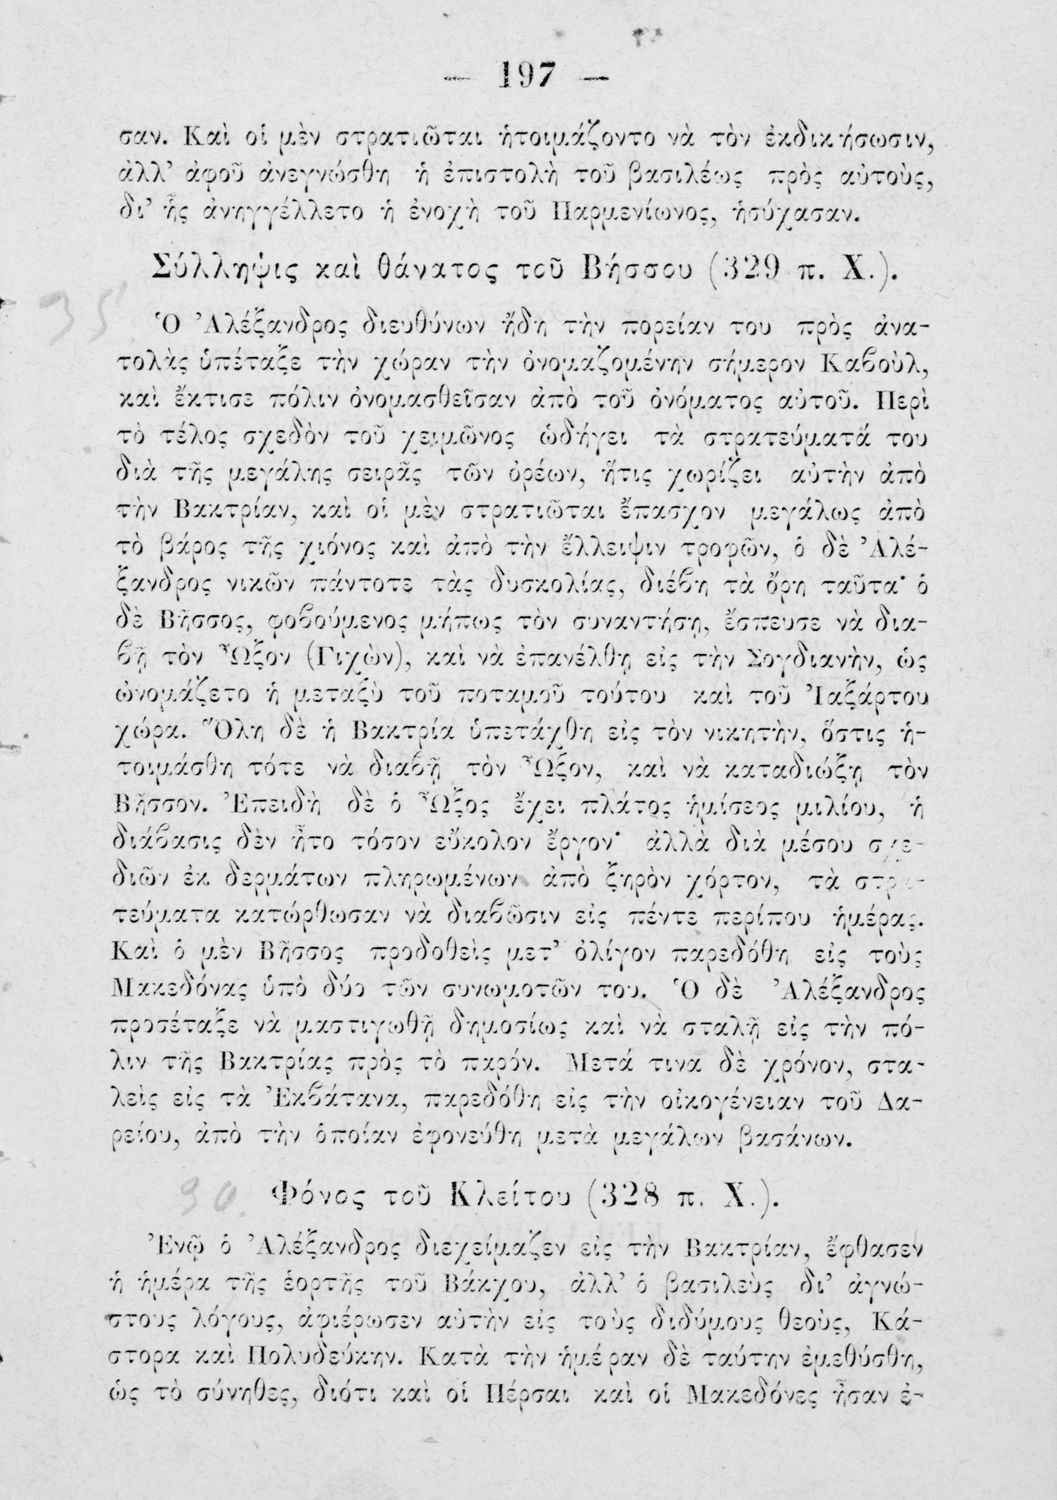 — 197 —
σαν. Καὶ οἱ μὲν στρατιῶται ἡτοιμάζοντο νὰ τὸν ἐκδικήσωσιν,
ἀλλ' ἀφοῦ ἀνεγνώσθη ἡ ἐπιστολὴ τοῦ βασιλέως πρὸς αὐτοὺς,
δι' ἧς ἀνηγγέλλετο ἡ ἐνοχὴ τοῦ Παρμενίωνος, ἡσύχασαν.
Σύλληψις καὶ θάνατος τοῦ Βήσσου (329 π. Χ.).
35
Ὁ Ἀλέξανδρος διευθύνων ἤδη τὴν πορείαν του πρὸς ἀνα-
τολὰς ὑπέταξε τὴν χώραν τὴν ὀνομαζομένην σήμερον Καβοὺλ,
καὶ ἔκτισε πόλιν ὀνομασθεῖσαν ἀπὸ τοῦ ὀνόματος αὐτοῦ. Περὶ
τὸ τέλος σχεδὸν τοῦ χειμῶνος ὡδήγει τὰ στρατεύματά του
διὰ τῆς μεγάλης σειρᾶς τῶν ὀρέων, ἥτις χωρίζει αὐτὴν ἀπὸ
τὴν Βακτρίαν, καὶ οἱ μὲν στρατιῶται ἔπασχον μεγάλως ἀπὸ
τὸ βάρος τῆς χιόνος καὶ ἀπὸ τὴν ἔλλειψιν τροφῶν, ὁ δὲ Ἀλέ-
ξανδρος νικῶν πάντοτε τὰς δυσκολίας, διέβη τὰ ὄρη ταῦτα· ὁ
δὲ Βῆσσος, φοβούμενος μήπως τὸν συναντήσῃ, ἔσπευσε νὰ δια-
βῇ τὸν Ὦξον (Γιχὼν), καὶ νὰ ἐπανέλθῃ εἰς τὴν Σογδιανὴν, ὡς
ὠνομάζετο ἡ μεταξὺ τοῦ ποταμοῦ τούτου καὶ τοῦ Ἰαξάρτου
χώρα. Ὅλη δὲ ἡ Βακτρία ὑπετάχθη εἰς τὸν νικητὴν, ὅστις ἡ-
τοιμάσθη τότε νὰ διαβῇ τὸν Ὦξον, καὶ νὰ καταδιώξῃ τὸν
Βῆσσον. Ἐπειδὴ δὲ ὁ Ὦξος ἔχει πλάτος ἡμίσεος μιλίου, ἡ
διάβασις δὲν ἦτο τόσον εὔκολον ἔργον· ἀλλὰ διὰ μέσου σχε-
διῶν ἐκ δερμάτων πληρωμένων ἀπὸ ξηρὸν χόρτον, τὰ στρα-
τεύματα κατώρθωσαν νὰ διαβῶσιν εἰς πέντε περίπου ἡμέρας.
Καὶ ὁ μὲν Βῆσσος προδοθεὶς μετ' ὀλίγον παρεδόθη εἰς τοὺς
Μακεδόνας ὑπὸ δύο τῶν συνωμοτῶν του. Ὁ δὲ Ἀλέξανδρος
προσέταξε νὰ μαστιγωθῇ δημοσίως καὶ νὰ σταλῇ εἰς τὴν πό-
λιν τῆς Βακτρίας πρὸς τὸ παρόν. Μετά τινα δὲ χρόνον, στα-
λεὶς εἰς τὰ Ἐκβάτανα, παρεδόθη εἰς τὴν οἰκογένειαν τοῦ Δα-
ρείου, ἀπὸ τὴν ὁποίαν ἐφονεύθη μετὰ μεγάλων βασάνων.
90. Φόνος τοῦ Κλείτου (328 π. Χ.).
Ἐνῷ ὁ Ἀλέξανδρος διεχείμαζεν εἰς τὴν Βακτρίαν, ἔφθασεν
ἡ ἡμέρα τῆς ἑορτῆς τοῦ Βάκχου, ἀλλ' ὁ βασιλεὺς δι' ἀγνώ-
στους λόγους, ἀφιέρωσεν αὐτὴν εἰς τοὺς διδύμους θεοὺς, Κά-
στορα καὶ Πολυδεύκην. Κατὰ τὴν ἡμέραν δὲ ταύτην ἐμεθύσθη,
ὡς τὸ σύνηθες, διότι καὶ οἱ Πέρσαι καὶ οἱ Μακεδόνες ἦσαν ἐ-